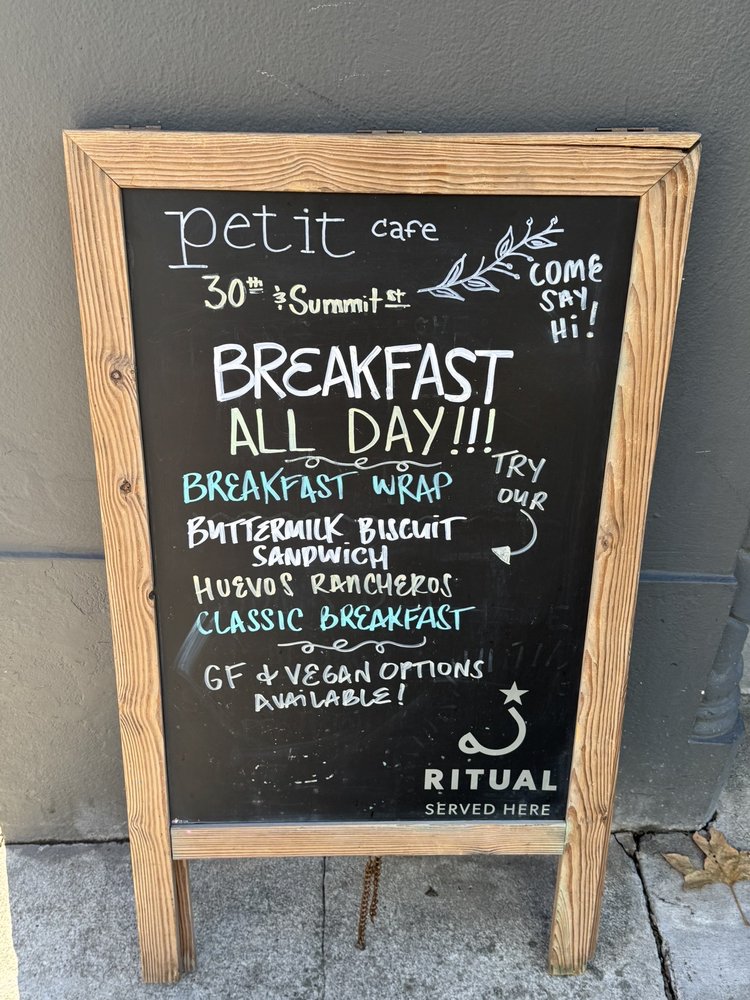 petit cafe
30th & Summit st
COME
SAY
Hi!
BREAKFAST
ALL DAY!!!
TRY
OUR
BREAKFAST WRAP
BUTTERMILK BISCUIT
SANDWICH
HUEVOS RANCHEROS
CLASSIC BREAKFAST
GF & VEGAN OPTIONS
AVAILABLE!
RITUAL
SERVED HERE